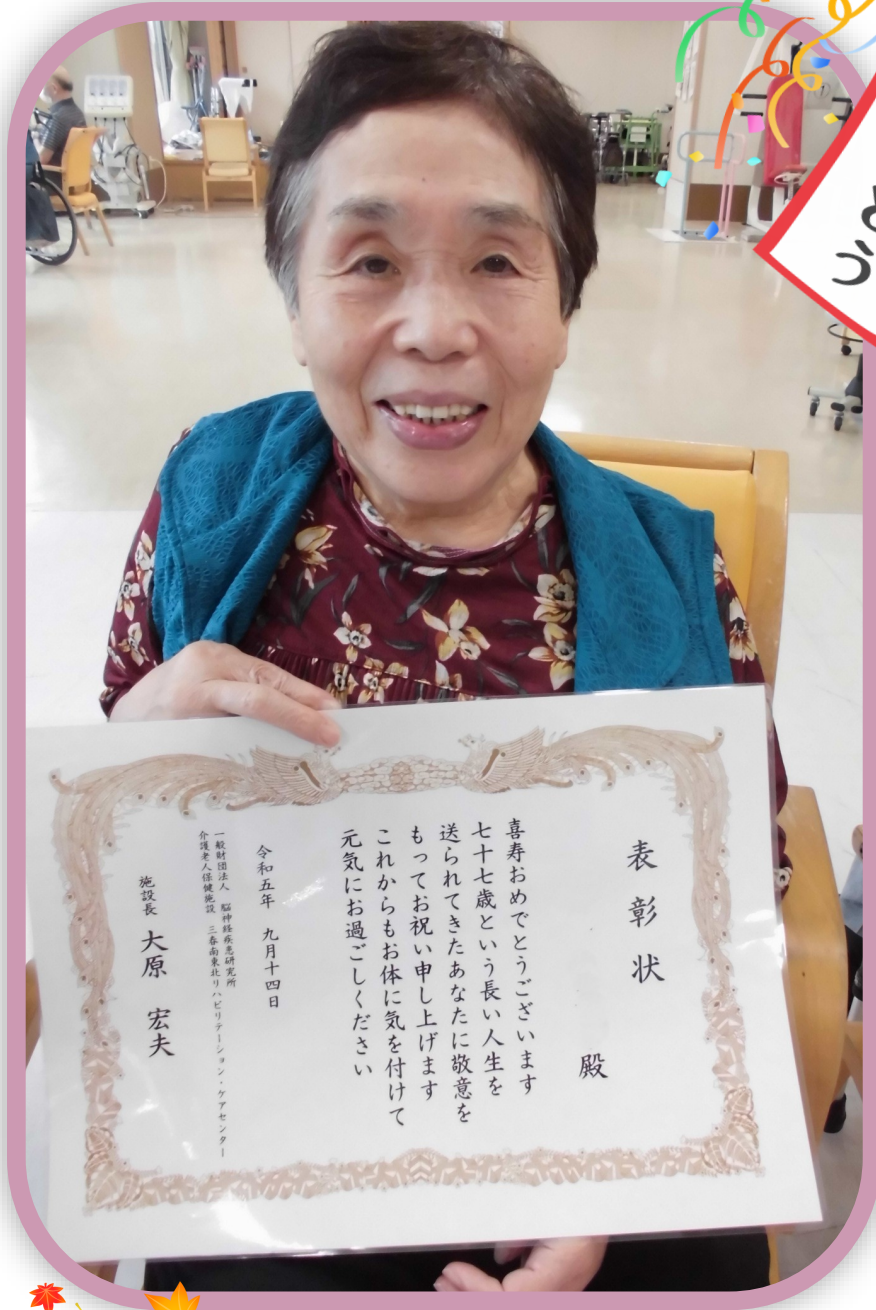 表彰状
殿
喜寿おめでとうございます
七十七歳という長い人生を
送られてきたあなたに敬意を
もってお祝い申し上げます
これからもお体に気を付けて
元気にお過ごしください
令和五年 九月十四日
一般財団法人 脳神経疾患研究所
介護老人保健施設 三春南東北リハビリテーション・ケアセンター
施設長 大原 宏夫
とう